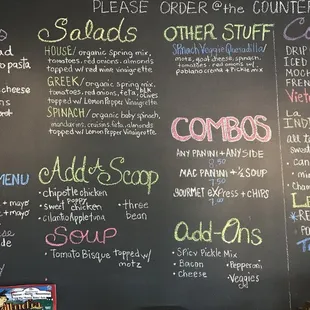 PLEASE ORDER @the COUNTER
Salads
HOUSE/organic spring mix,
tomatoes, red onions, almonds
topped w/ red wine vinaigrette
GREEK/organic spring mix,
tomatoes, red onions, feta, blk olives
topped w/ Lemon Pepper Vinaigrette
SPINACH/organic baby spinach,
mandarins, craisins, feta, almonds
topped w/ Lemon Pepper Vinaigrette
Add a Scoop
• chipotle chicken
• sweet poppy chicken
• cilantro Appletina
• three bean
SOUP
• Tomato Bisque topped w/ motz
OTHER STUFF
Spinach Veggie Quesadilla/
motz, goat cheese, spinach
tomatoes, red onions w/
poblano crema & pickle mix
COMBOS
ANY PANINI + ANY SIDE
9.50
MAC PANINI + ½ SOUP
GOURMET EXPRESS + CHIPS
Add-Ons
• Spicy Pickle Mix
• Bacon
• Cheese
• Pepperoni
• Veggies
to pasta
cheese
MENU
+ mayo
DRIP
ICED
MOCH
FRENCH
Viet
La
all t